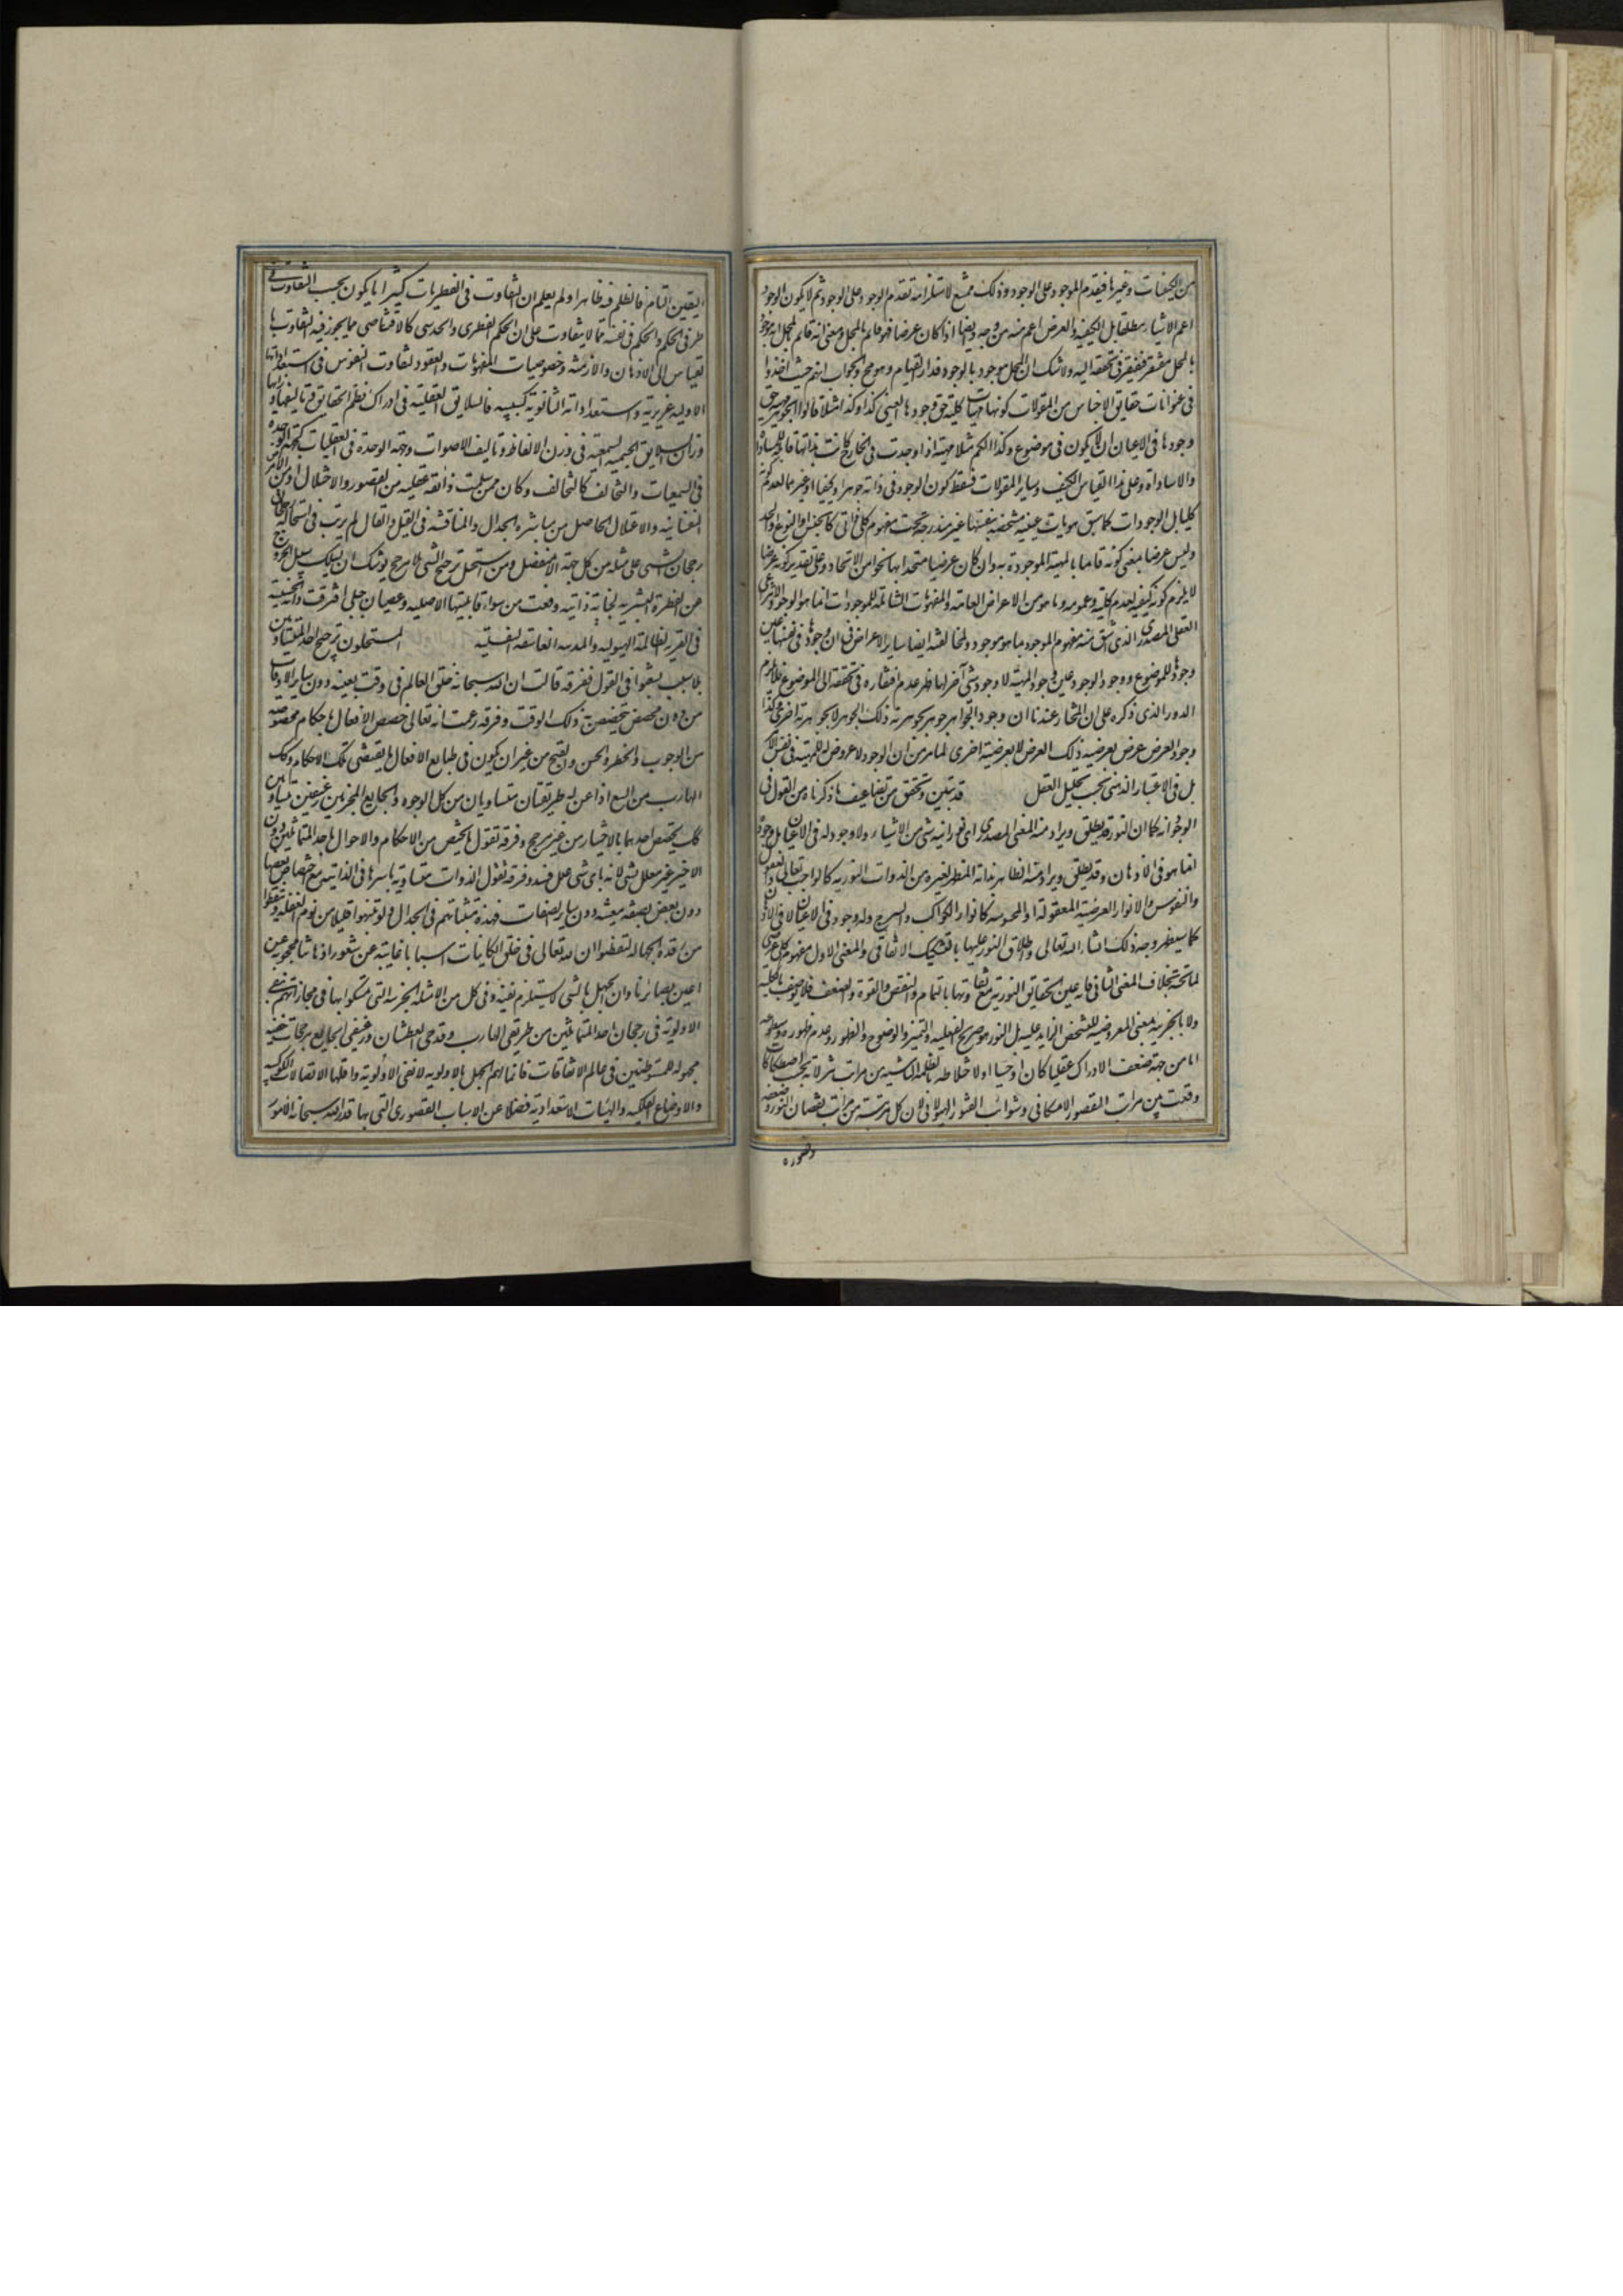 من الكيفيات وغيرها فيتقدم الموجود على الوجود وذلك ممتنع لاستلزامه تقدم الوجود على الوجود ثم لا يكون الوجود
اعم الاشياء مطلقا بل الكيفية والعرض اعم منه من وجه وايضا اذا كان عرضا فهو قائم بالمحل ومعنى انه قائم بالمحل انه موجود
بالمحل مفتقر في تحققه اليه ولا شك ان المحل موجود بالوجود فدار القيام وهو مح والجواب انهم حيث اخذوا
فى عنوانات حقايق الاجناس من المقولات كونها مهيات كلية حق وجودها العينى كذا وكذا مثلا قالوا الجوهر مهية حق
وجودها فى الاعيان ان لا يكون فى موضوع وكذا الكم مثلا مهية اذا وجدت فى الخارج كانت بذاتها قابلة للمساواة
واللامساواة وعلى هذا القياس الكيف وساير المقولات فسقط كون الوجود فى ذاته جوهرا او كيفا او غيرهما لعدم كونه
كليا بل الوجودات كما سبق هويات عينية متشخصة بنفسها غير مندرجة تحت مفهوم كلى ذاتى كالجنس او النوع او الحد
وليس عرضا بمعنى كونه قائما بالمهية الموجودة به وان كان عرضيا متحدا بها نحوا من الاتحاد وعلى تقدير كونه عرضا
لا يلزم كونه كيفية لعدم كليته وعمومه وما هو من الاعراض العامة والمفهومات الشاملة للموجودات انما هو الوجود الانتزاعى
العقلى المصدرى الذى اشتق منه مفهوم الموجود بما هو موجود ولمخالفته ايضا ساير الاعراض فى ان وجودها فى نفسها عين
وجودها للموضوع ووجود الوجود عين وجود المهية لا وجود شى آخر لها ظهر عدم افتقاره فى تحققه الى الموضوع فلا يلزم
الدور الذى ذكره على ان المختار عندنا ان وجود الجوهر جوهر بجوهرية ذلك الجوهر لا بجوهرية اخرى وكذا
وجود العرض عرض بعرضية ذلك العرض لا بعرضية اخرى لما مر من ان الوجود لا عروض له للمهية فى نفس الامر
بل فى الاعتبار الذهنى بحسب تحليل العقل قد تبين وتحقق من تضاعيف ما ذكرناه من القول فى
الوجود انه كما ان النور قد يطلق ويراد منه المعنى المصدرى اى نورانية شى من الاشياء ولا وجود له فى الاعيان بل وجوده
انما هو فى الاذهان وقد يطلق ويراد منه الظاهر بذاته المظهر لغيره من الذوات النورية كالواجب تعالى والعقول
والنفوس والانوار العرضية المعقولة او المحسوسة كانوار الكواكب والسرج وله وجود فى الاعيان لا فى الاذهان
كما سيظهر وجه ذلك انشاء الله تعالى واطلاق النور عليها بالتشكيك الاتفاقى والمعنى الاول مفهوم كلى عرضى
لما تحته بخلاف المعنى الثانى فانه عين الحقايق النورية مع تفاوتها بالتمام والنقص والقوة والضعف فلا يوصف بالكلية
ولا بالجزئية بمعنى المعروضية للتشخص الزايد عليه بل النور هو صريح الفعلية والتميز والوضوح والظهور وعدم ظهوره وسطوعه
اما من جهة ضعف الادراك عقليا كان او حسيا او لاختلاطه بالظلمة الناشية من مراتب تنزلاته بحسب اصطكاكات
وقعت بين مراتب القصور الامكانى وشوائب الفتور الهيولانى لان كل مرتبة من مراتب نقصان النور وضعفه
وقصوره
اليقين التام فالظلم فيه ظاهرا ولم يعلم ان التفاوت فى الفطريات كثيرا ما يكون بحسب التفاوت فى
طرفى الحكم والحكم فى نفسه مما لا يتفاوت على ان الحكم الفطرى والحدسى كالاقتناصى مما يجوز فيه التفاوت بالـ
قياس الى الاذهان والازمنة وخصوصيات المفهومات والعقود لتفاوت النفوس فى استعداداتها
الاولية غريزية واستعداداته الثانوية كسبية فالسلايق العقلية فى ادراك نظم الحقايق وتاليفها
وزان السلايق الحسية السمعية فى وزن الالفاظ وتاليف الاصوات وجهة الوحدة فى العقليات كجهة الوحدة
فى السمعيات والتخالف كالتخالف وكان ممن سلمت ذائقة عقليه من القصور والاختلال او من الامراض
النفسانية والاعتلال الحاصل من مباشرة الجدال والمناقشة فى القيل والقال لم يرتب فى استحالة
رجحان الشى على مثله من كل جهة الا بمنفصل ومن استحل ترجيح الشى بلا مرجح يوشك ان يسلك سبيل الخروج
عن الفطرة البشرية لخباثة ذاتية وقعت من سوء قابليتها الاصلية وعصيان جبلى اقترفت ذاته الخبيثة
فى القرية الظالمة الهيولية والمدينة الفاسقة السفلية المستحلون ترجيح احد المتساويين
بلا سبب تشعبوا فى القول ففرقة قالت ان الله سبحانه خلق العالم فى وقت بعينه دون ساير الاوقات
من دون مخصص يتخصص به ذلك الوقت وفرقة زعمت انه تعالى خصص الافعال باحكام مخصوصة
من الوجوب والحظر والحسن والقبح من غير ان يكون فى طبايع الافعال ما يقتضى تلك الاحكام وكك
الهارب من السبع اذا عن له طريقتان متساويان من كل الوجوه والجايع المخير بين رغيفين متساويين
كك يختص احدهما بالاختيار من غير مرجح وفرقة تقول ما يختص من الاحكام والاحوال باحد المتماثلين دون
الاخر غير معلل بشى لانه باى شى علل فسد وفرقة تقول الذوات متساوية باسرها فى الذاتية مع اختصاص بعضها
دون بعض بصفة معينة دون ساير الصفات فهذه متشبثاتهم فى الجدال ولو تنبهوا قليلا من نوم الغفلة وتيقظوا
من رقدة الجهالة لتفطنوا ان لله تعالى فى خلق الكاينات اسبابا غايبة عن شعور اذهاننا محجوبة عن
اعين بصائرنا وان الجهل بالشى لا يستلزم نفيه وفى كل من الامثلة الجزئية التى تمسكوا بها فى مجازاتهم بنفى
الاولوية فى رجحان احد المتماثلين من طريقى الهارب وقدحى العطشان ورغيفى الجايع مرجحات خفية
مجهولة للمستوطنين فى عالم الاتفاقات فانما لهم الجهل بالاولوية لا نفى الاولوية واقلها الاتصالات الكوكبية
والاوضاع الفلكية والهيئات الاستعدادية فضلا عن الاسباب القصوى التى بها قدر الله سبحانه الامور